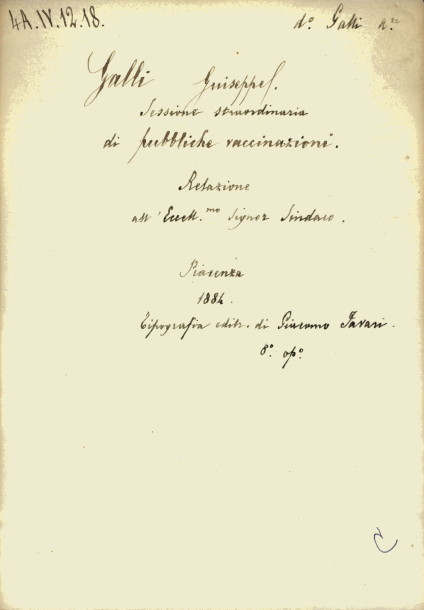 4A.IV.12.18.
d.º Galli
Galli Guiseppe.
Sessione straordinaria
di pubbliche vaccinazioni.
Relazione
all'Eccell.mo Signor Sindaco.
Piacenza
1884.
Tipografia editr. di Giacomo Tavari.
8.º op.º
C